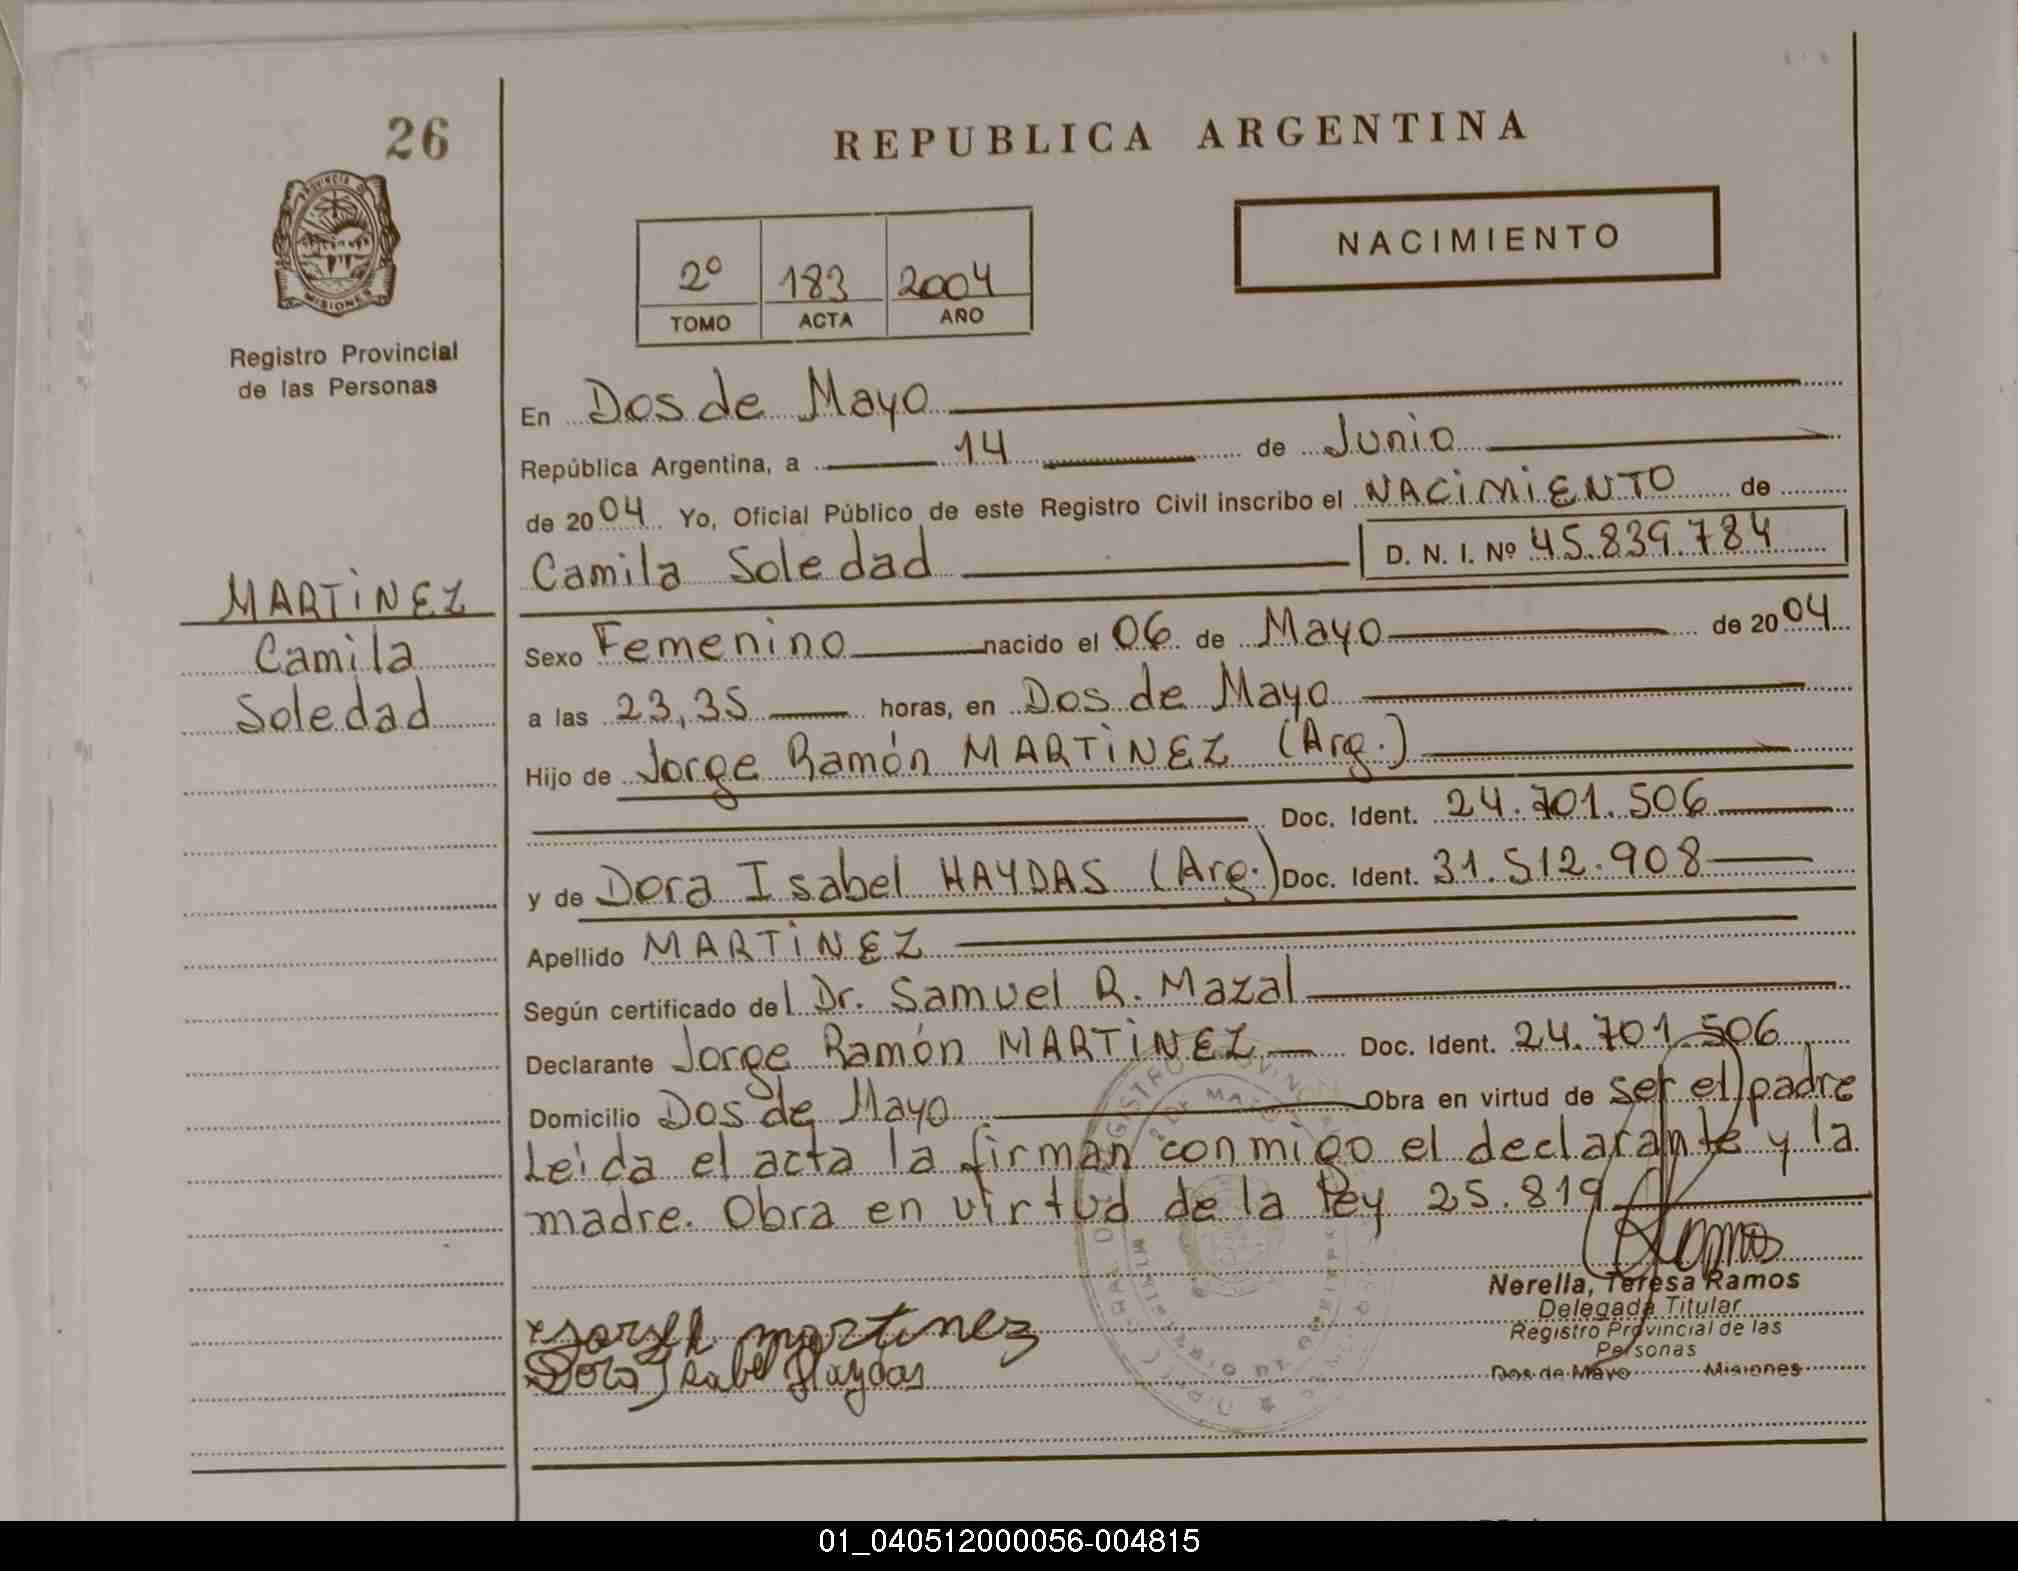 26
REPUBLICA ARGENTINA
PROVINCIA DE
MISIONES
Registro Provincial
de las Personas
NACIMIENTO
2º 183 2004
TOMO ACTA AÑO
En Dos de Mayo
República Argentina, a 14 de Junio
de 2004 Yo, Oficial Público de este Registro Civil inscribo el NACIMIENTO de
Camila Soledad D. N. I. Nº 45.839.784
MARTINEZ
Camila
Soledad
Sexo Femenino nacido el 06 de Mayo de 2004
a las 23,35 horas, en Dos de Mayo
Hijo de Jorge Ramón MARTINEZ (Arg.)
Doc. Ident. 24.701.506
y de Dora Isabel HAYDAS (Arg.) Doc. Ident. 31.512.908
Apellido MARTINEZ
Según certificado del Dr. Samuel R. Mazal
Declarante Jorge Ramón MARTINEZ Doc. Ident. 24.701.506
Domicilio Dos de Mayo Obra en virtud de ser el padre
Leida el acta la firman conmigo el declarante y la
madre. Obra en virtud de la ley 25.819
Ramos
Nerella, Teresa Ramos
Delegada Titular
Registro Provincial de las
Personas
Dos de Mayo Misiones
Jorge martinez
Dora Isabel Haydas
01_040512000056-004815